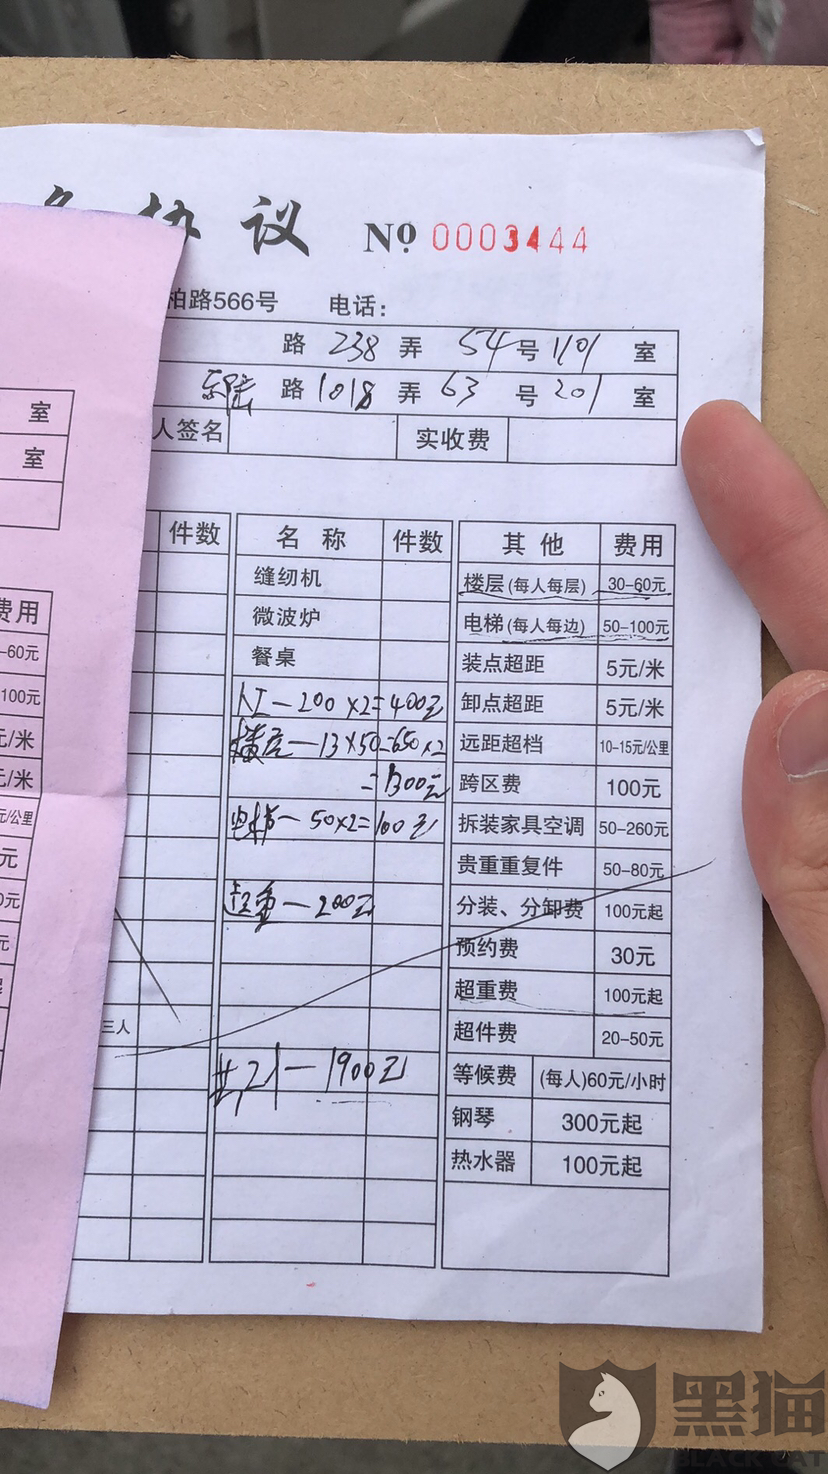 协 议 Nº 0003444
柏路566号 电话：
路 238 弄 54 号 1101 室
路 1018 弄 63 号 201 室
人签名 实收费
室
室
件数 名 称 件数 其 他 费用
缝纫机 楼层(每人每层) 30-60元
微波炉 电梯(每人每边) 50-100元
餐桌 装点超距 5元/米
人工一200×2=400元 卸点超距 5元/米
楼层一13×50=650×2 远距超档 10-15元/公里
=1300元 跨区费 100元
电梯一50×2=100元 拆装家具空调 50-260元
贵重重复件 50-80元
超重一200元 分装、分卸费 100元起
预约费 30元
超重费 100元起
三人 超件费 20-50元
共计一1900元 等候费 (每人)60元/小时
钢琴 300元起
热水器 100元起
费用
-60元
100元
元/米
元/米
元/公里
元
0元
元
黑猫
BLACK CAT